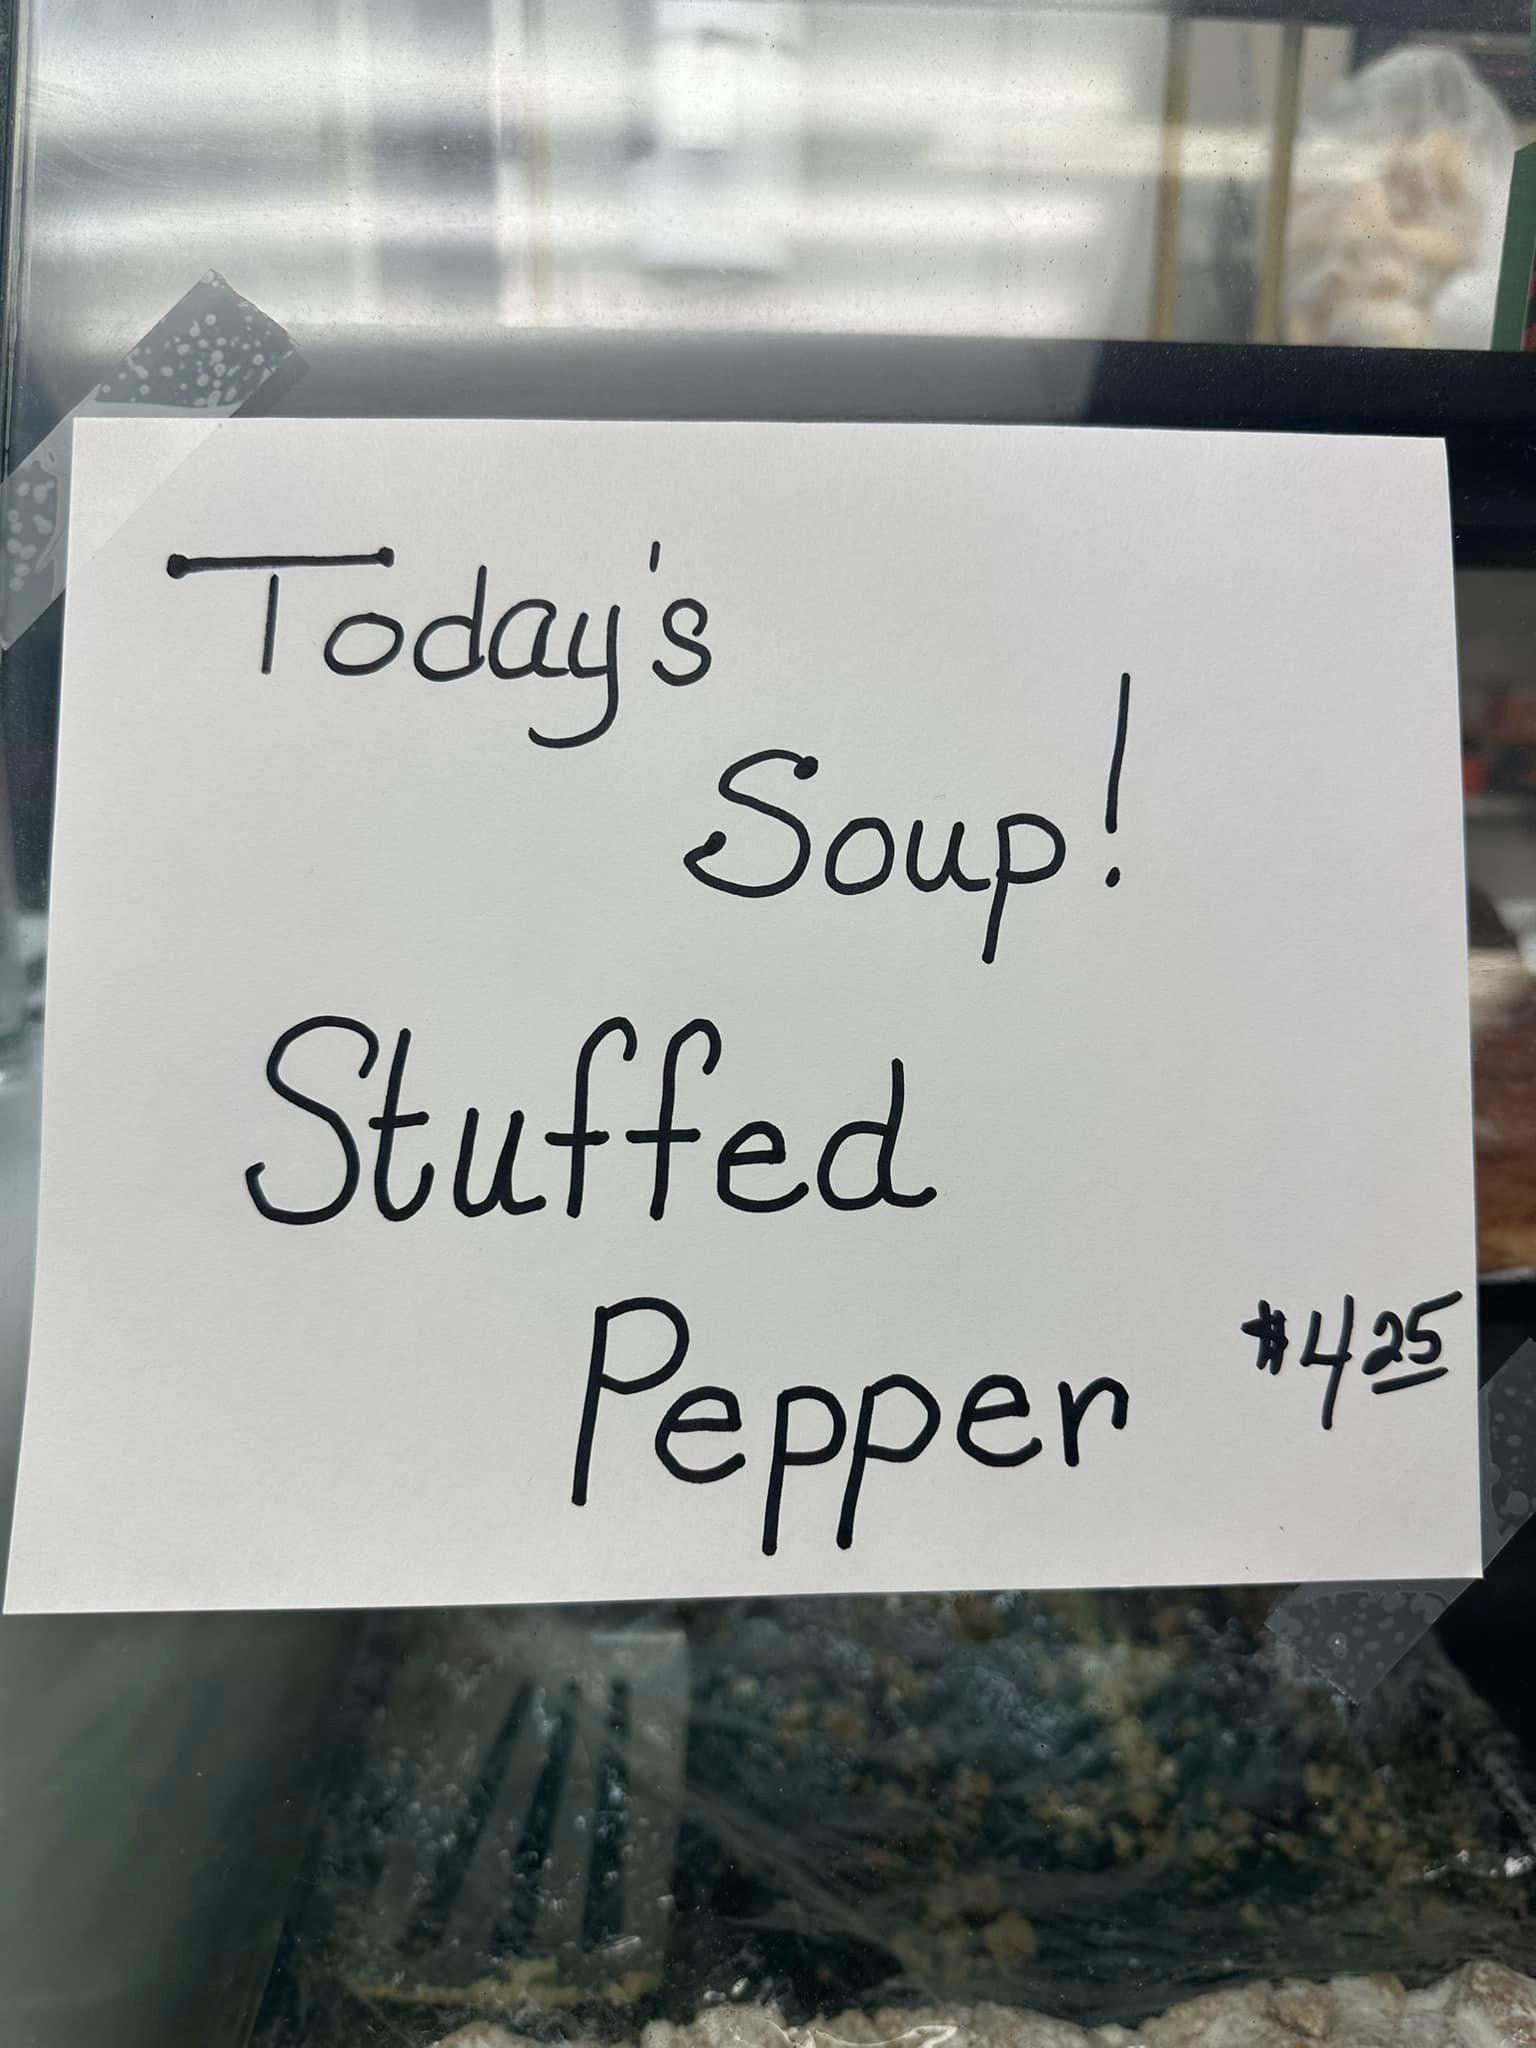 Today's
Soup!
Stuffed
Pepper $4 25